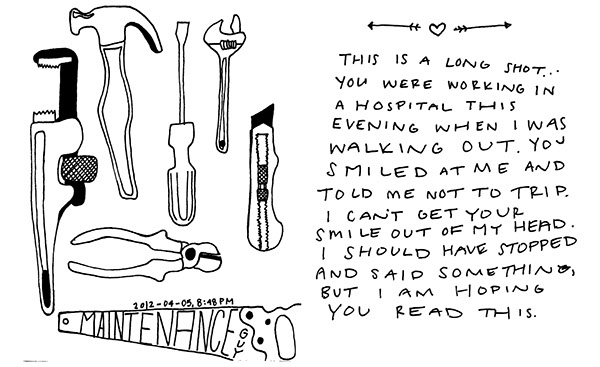 2012-04-05, 8:48PM
MAINTENANCE GUY
THIS IS A LONG SHOT...
YOU WERE WORKING IN
A HOSPITAL THIS
EVENING WHEN I WAS
WALKING OUT. YOU
SMILED AT ME AND
TOLD ME NOT TO TRIP.
I CAN'T GET YOUR
SMILE OUT OF MY HEAD.
I SHOULD HAVE STOPPED
AND SAID SOMETHING,
BUT I AM HOPING
YOU READ THIS.